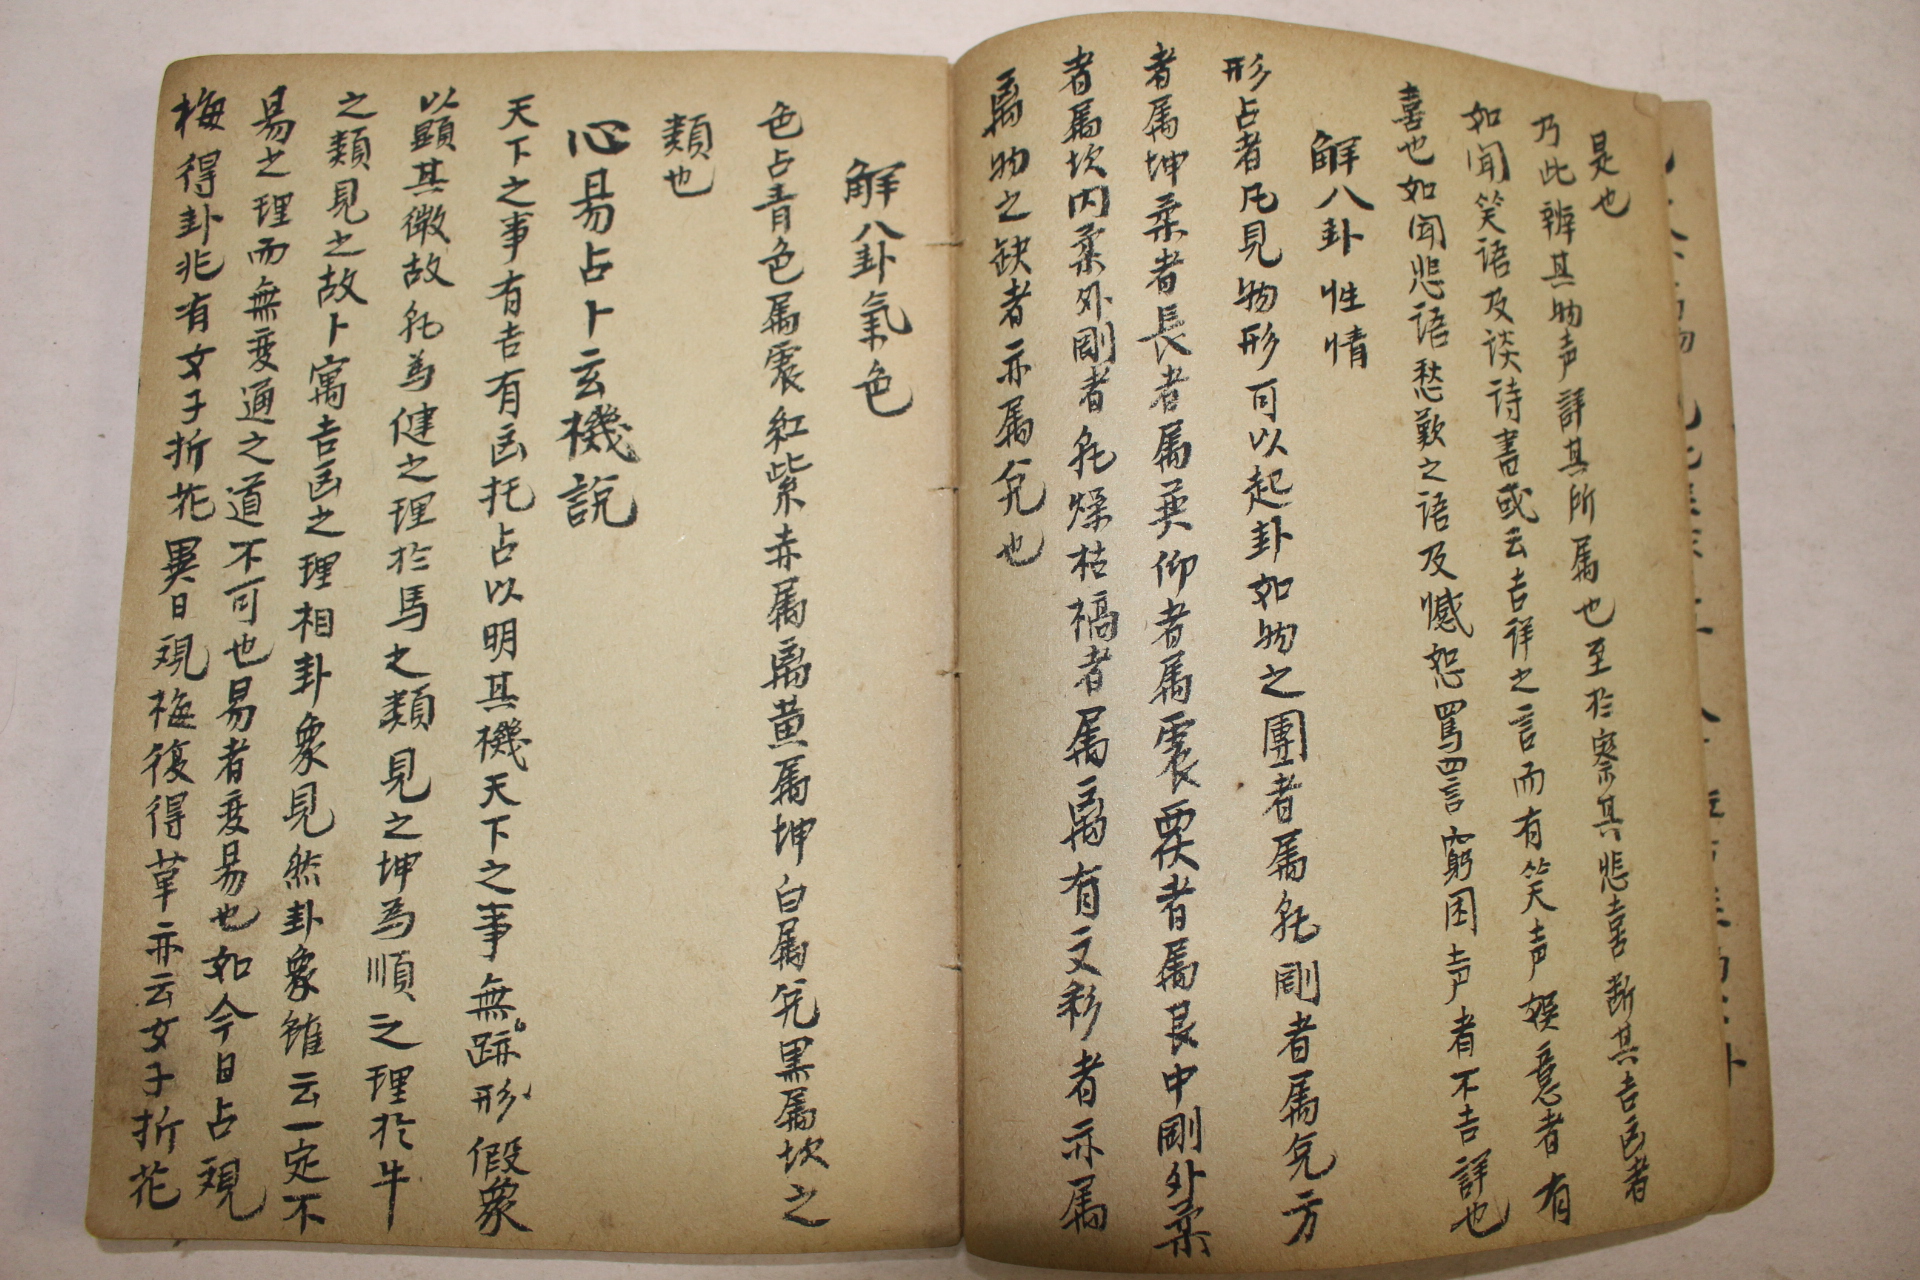 是也
乃此辨其物声詳其所属也至於察其悲喜断其吉凶者
如闻笑语及谈诗書或云吉祥之言而有笑声娱意者有
喜也如闻悲语愁歎之语及憾怨罵詈窮困声者不吉詳也
解八卦性情
形占者凡見物形可以起卦如物之團者属乾剛者属兌方
者属坤柔者長者属巽仰者属震覆者属艮中剛外柔
者属坎内柔外剛者乾燥枯槁者属离有文彩者亦属
离物之缺者亦属兌也
解八卦氣色
色占青色属震紅紫赤属离黄属坤白属兌黑属坎之
類也
心易占卜玄機説
天下之事有吉有凶托占以明其機天下之事無跡形假象
以顯其微故乾為健之理於馬之類見之坤為順之理於牛
之類見之故卜寓吉凶之理相卦象見然卦象雖云一定不
易之理而無变通之道不可也易者变易也如今日占观
梅得卦兆有女子折花異日观梅復得革亦云女子折花